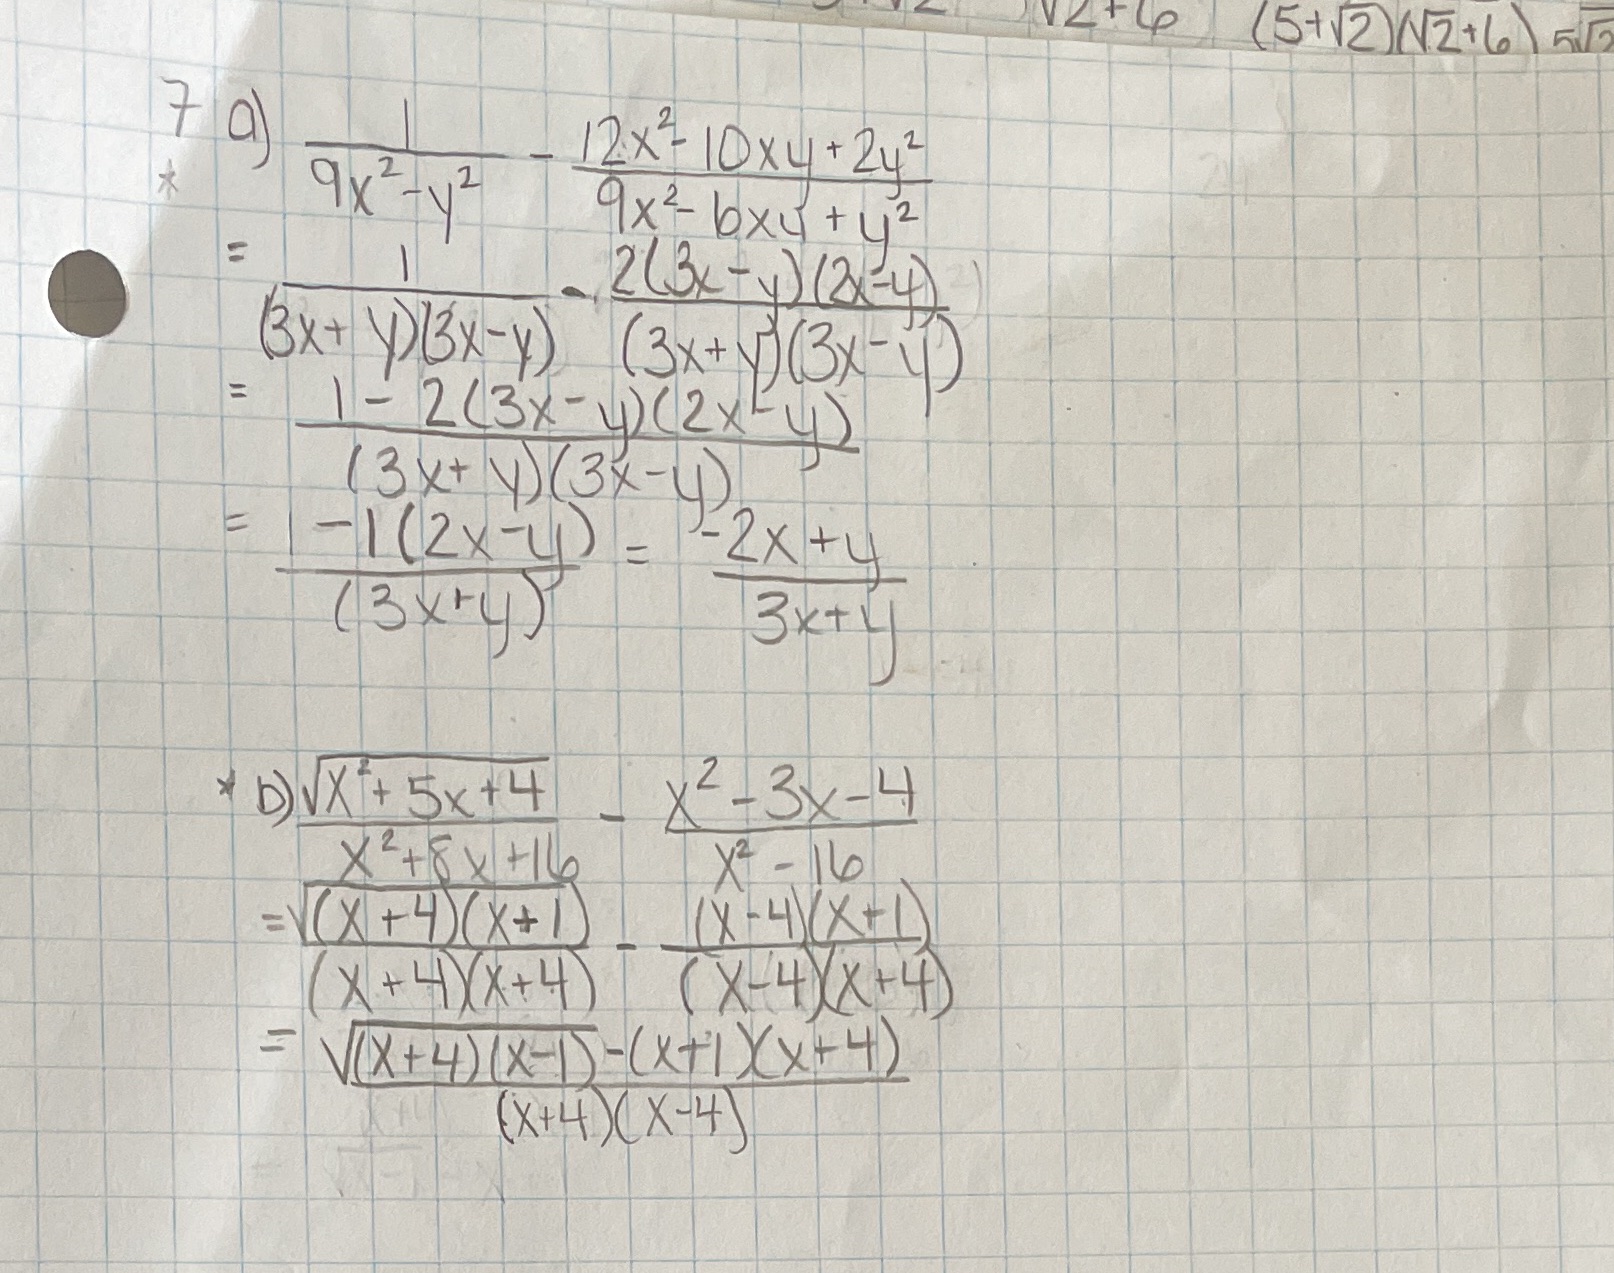 √2+6 (5+√2)(√2+6) 5√2
7 a) 1/(9x²-y²) - (12x²-10xy+2y²)/(9x²-6xy+y²)
*
= 1/((3x+y)(3x-y)) - (2(3x-y)(2x-y))/((3x+y)(3x-y))
= (1-2(3x-y)(2x-y))/((3x+y)(3x-y))
= (-1(2x-y))/(3x+y) = (-2x+y)/(3x+y)
* b) √(x²+5x+4)/(x²+8x+16) - (x²-3x-4)/(x²-16)
= √((x+4)(x+1))/((x+4)(x+4)) - ((x-4)(x+1))/((x-4)(x+4))
= (√((x+4)(x-1))-(x+1)(x+4))/((x+4)(x-4))